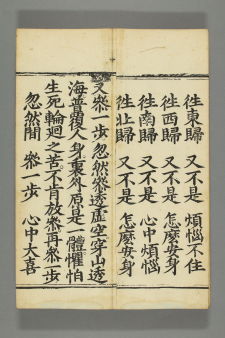 徃東歸 又不是 煩惱不住
徃西歸 又不是 怎麼安身
徃南歸 又不是 心中煩惱
徃北歸 又不是 怎麼安身
又叅一步忽然叅透虛空穿山透
海普覆人身裏外原是一體懼怕
生死輪迴之苦不肯放叅再叅一步
忽然間 叅一步 心中大喜